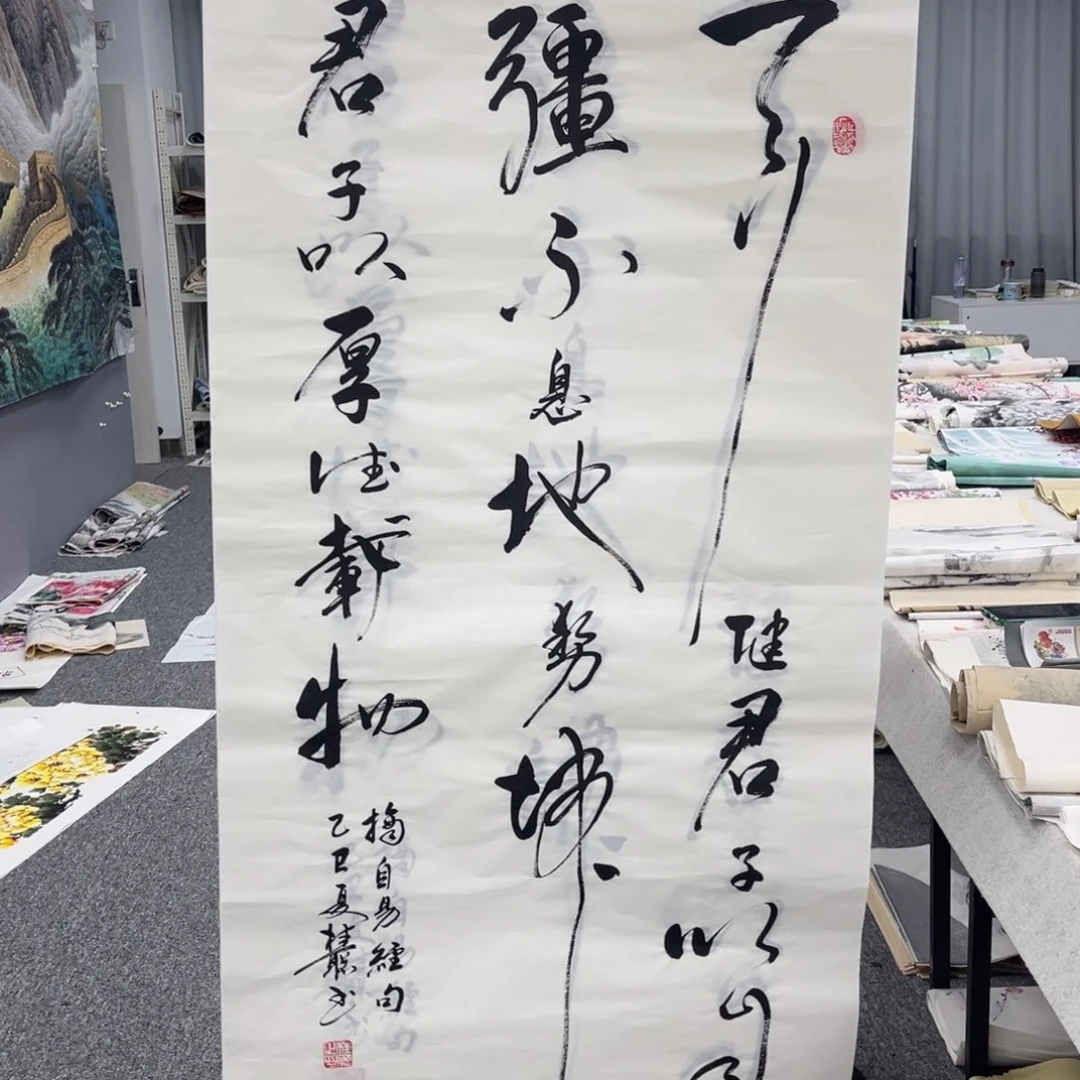 天行健君子以自
彊不息地勢坤
君子以厚德載物
摘自易經句
乙巳夏書